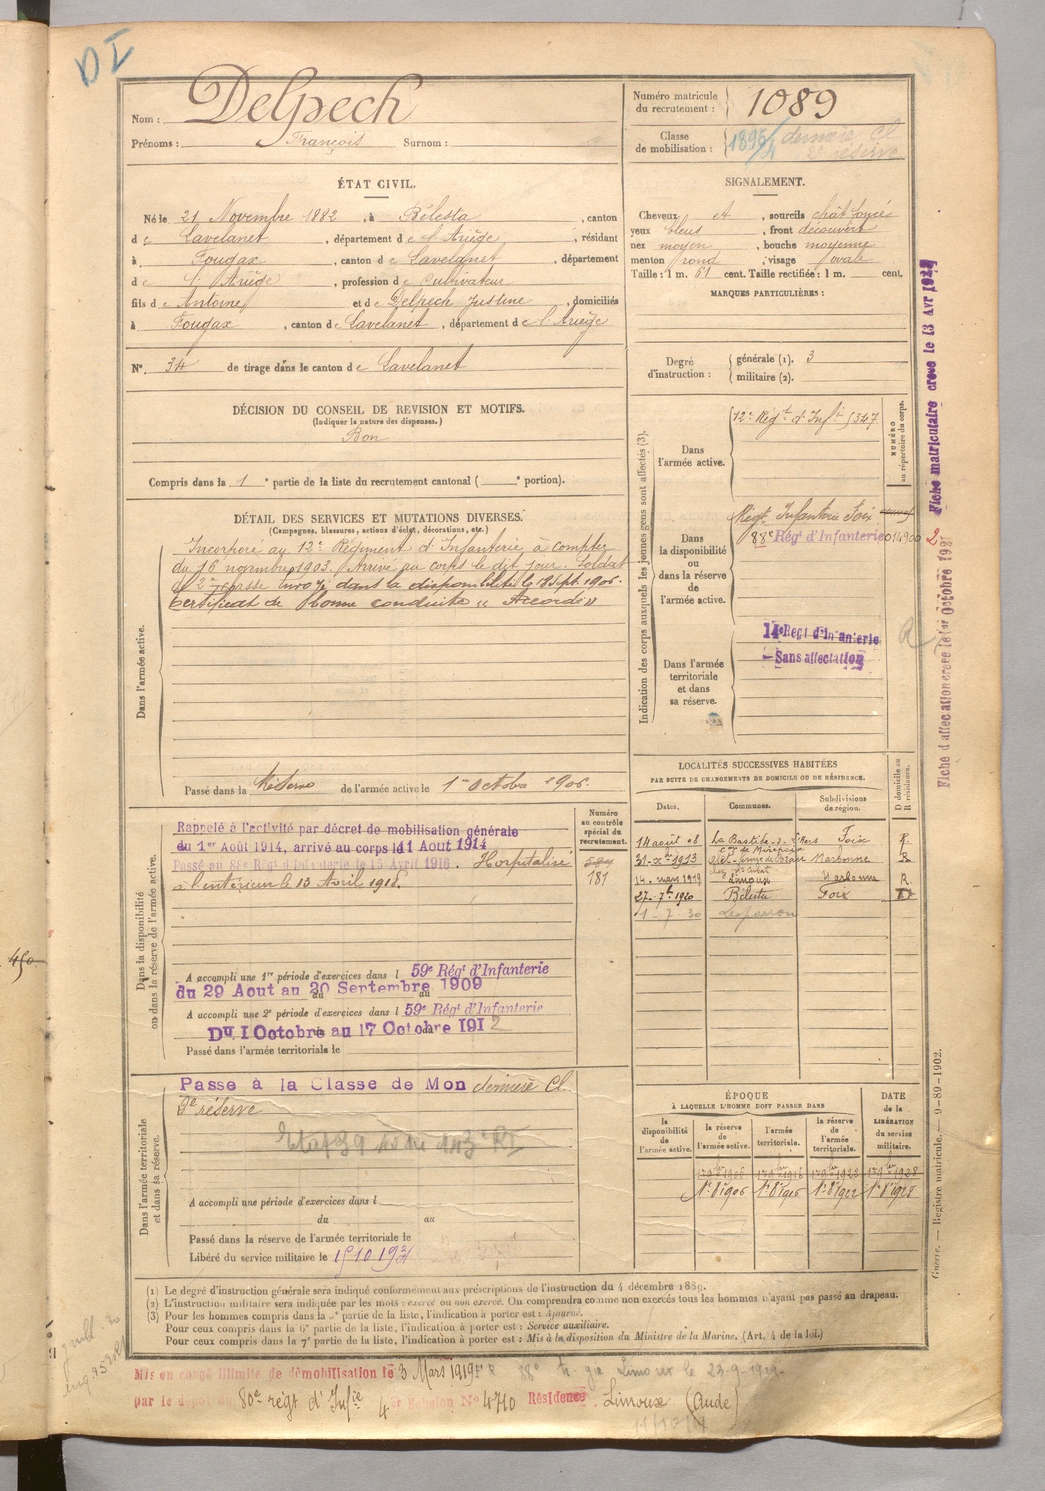 DI
Nom : Delpech
Prénoms : François Surnom :
Numéro matricule du recrutement : 1089
Classe de mobilisation : 1895/4 dernière Cl 2e réserve
ÉTAT CIVIL.
Né le 21 Novembre 1882, à Bélesta, canton
de Lavelanet, département de l'Ariège, résidant
à Fougax, canton de Lavelanet, département
de l'Ariège, profession de Cultivateur
fils de Antoine et de Delpech Justine, domiciliés
à Fougax, canton de Lavelanet, département de l'Ariège
N° 34 de tirage dans le canton de Lavelanet
SIGNALEMENT.
Cheveux et, sourcils chât foncé
yeux bleus, front découvert
nez moyen, bouche moyenne
menton rond, visage ovale
Taille : 1 m. 61 cent. Taille rectifiée : 1 m. cent.
MARQUES PARTICULIÈRES :
Degré d'instruction : générale (1). 3
militaire (2).
DÉCISION DU CONSEIL DE REVISION ET MOTIFS.
(Indiquer la nature des dispenses.)
Bon
Compris dans la 1e partie de la liste du recrutement cantonal ( e portion).
DÉTAIL DES SERVICES ET MUTATIONS DIVERSES.
(Campagnes, blessures, actions d'éclat, décorations, etc.)
Dans l'armée active.
Incorporé au 12e Régiment d'Infanterie à compter
du 16 novembre 1903. Arrivé au corps le dit jour. Soldat
de 2e classe. Envoyé dans la disponibilité le 18 Sept. 1906.
Certificat de Bonne conduite « Accordé »
Passé dans la Réserve de l'armée active le 1er Octobre 1906.
Indication des corps auxquels les jeunes gens sont affectés (3).
NUMÉRO au répertoire du corps.
Dans l'armée active.
12e Régt d'Infie 5347
Dans la disponibilité ou dans la réserve de l'armée active.
Régt Infanterie Foix
88e Rég t d'Infanterie 014900
Dans l'armée territoriale et dans sa réserve.
14e Regt d'Infanterie
Sans affectation
Fiche matriculaire creee le 13 Avr
Fiche d'affectation creee le 1er Octobre
LOCALITÉS SUCCESSIVES HABITÉES
PAR SUITE DE CHANGEMENTS DE DOMICILE OU DE RÉSIDENCE.
Dates. Communes. Subdivisions de région. D domicile ou R résidence.
14 août 08 La Bastide-s-l'Hers Foix R.
31-xre 1913 Narbonne R
14 mars 1919 Limoux Narbonne R.
27-7bre 1920 Bélesta Foix D
1-7 30 Lesparrou
Dans la disponibilité ou dans la réserve de l'armée active.
Numéro au contrôle spécial du recrutement.
181
Rappelé à l'activité par décret de mobilisation générale
du 1er Août 1914, arrivé au corps le 11 Aout 1914
Passé au 88e Régt d'Infanterie le 15 Avril 1916. Hospitalisé
à l'intérieur le 13 Avril 1918.
A accompli une 1re période d'exercices dans l 59e Régt d'Infanterie
du 29 Aout au 20 Septembre 1909
A accompli une 2e période d'exercices dans l 59e Régt d'Infanterie
Du 1 Octobre au 17 Octobre 1912
Passé dans l'armée territoriale le
Dans l'armée territoriale et dans sa réserve.
Passé à la Classe de Mon dernière Cl.
2e réserve
A accompli une période d'exercices dans l
du au
Passé dans la réserve de l'armée territoriale le
Libéré du service militaire le 15 10 1931
ÉPOQUE
À LAQUELLE L'HOMME DOIT PASSER DANS
la disponibilité de l'armée active.
la réserve de l'armée active.
l'armée territoriale.
la réserve de l'armée territoriale.
DATE de la LIBÉRATION du service militaire.
(1) Le degré d'instruction générale sera indiqué conformément aux prescriptions de l'instruction du 4 décembre 1889.
(2) L'instruction militaire sera indiquée par les mots : exercé ou non exercé. On comprendra comme non exercés tous les hommes n'ayant pas passé au drapeau.
(3) Pour les hommes compris dans la 5e partie de la liste, l'indication à porter est : Ajourné.
Pour ceux compris dans la 6e partie de la liste, l'indication à porter est : Service auxiliaire.
Pour ceux compris dans la 7e partie de la liste, l'indication à porter est : Mis à la disposition du Ministre de la Marine. (Art. 4 de la loi.)
Guerre. — Registre matricule. — 9-89-1902.
Mis en congé illimité de démobilisation le 3 Mars 1919
par le dépôt du 80e régt d'Infie 4e Echelon No 4740 Résidence. Limoux (Aude)
450